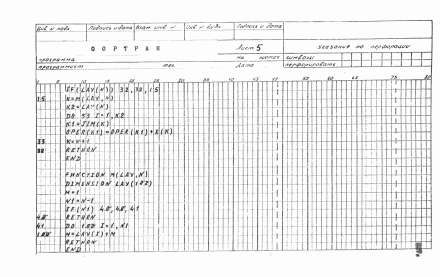 Инв. № подл. Подпись и дата Взам. инв. № Инв. № дубл. Подпись и дата
ФОРТРАН Лист 5 Указание по перфорации
программа На листах символы
программист тел. Дата перфорировать
0 5 10 15 20 25 30 35 40 45 50 55 60 65 72 80
IF(LAY(N)) 32,32,15
15 K=M(LAY,N)
K2=LAY(N)
DO 33 I=1,K2
K1=JIM(K)
OPER(K1)=OPER(K1)+X(K)
33 K=K+1
32 RETURN
END
FUNCTION M(LAY,N)
DIMENSION LAY(102)
M=1
N1=N-1
IF(N1) 40,40,41
40 RETURN
41 DO 100 I=1,N1
100 M=LAY(I)+M
RETURN
END